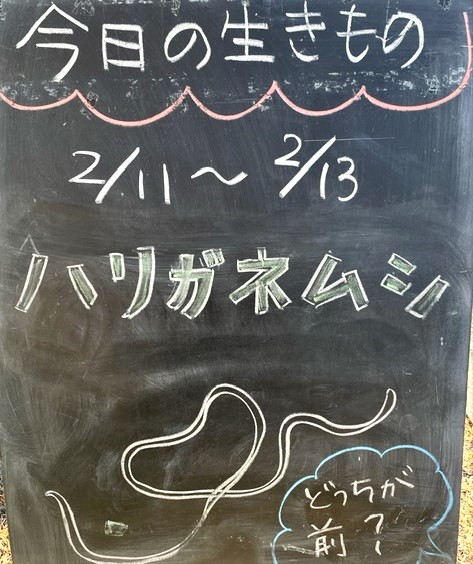 今日の生きもの
2/11〜2/13
ハリガネムシ
どっちが
前?